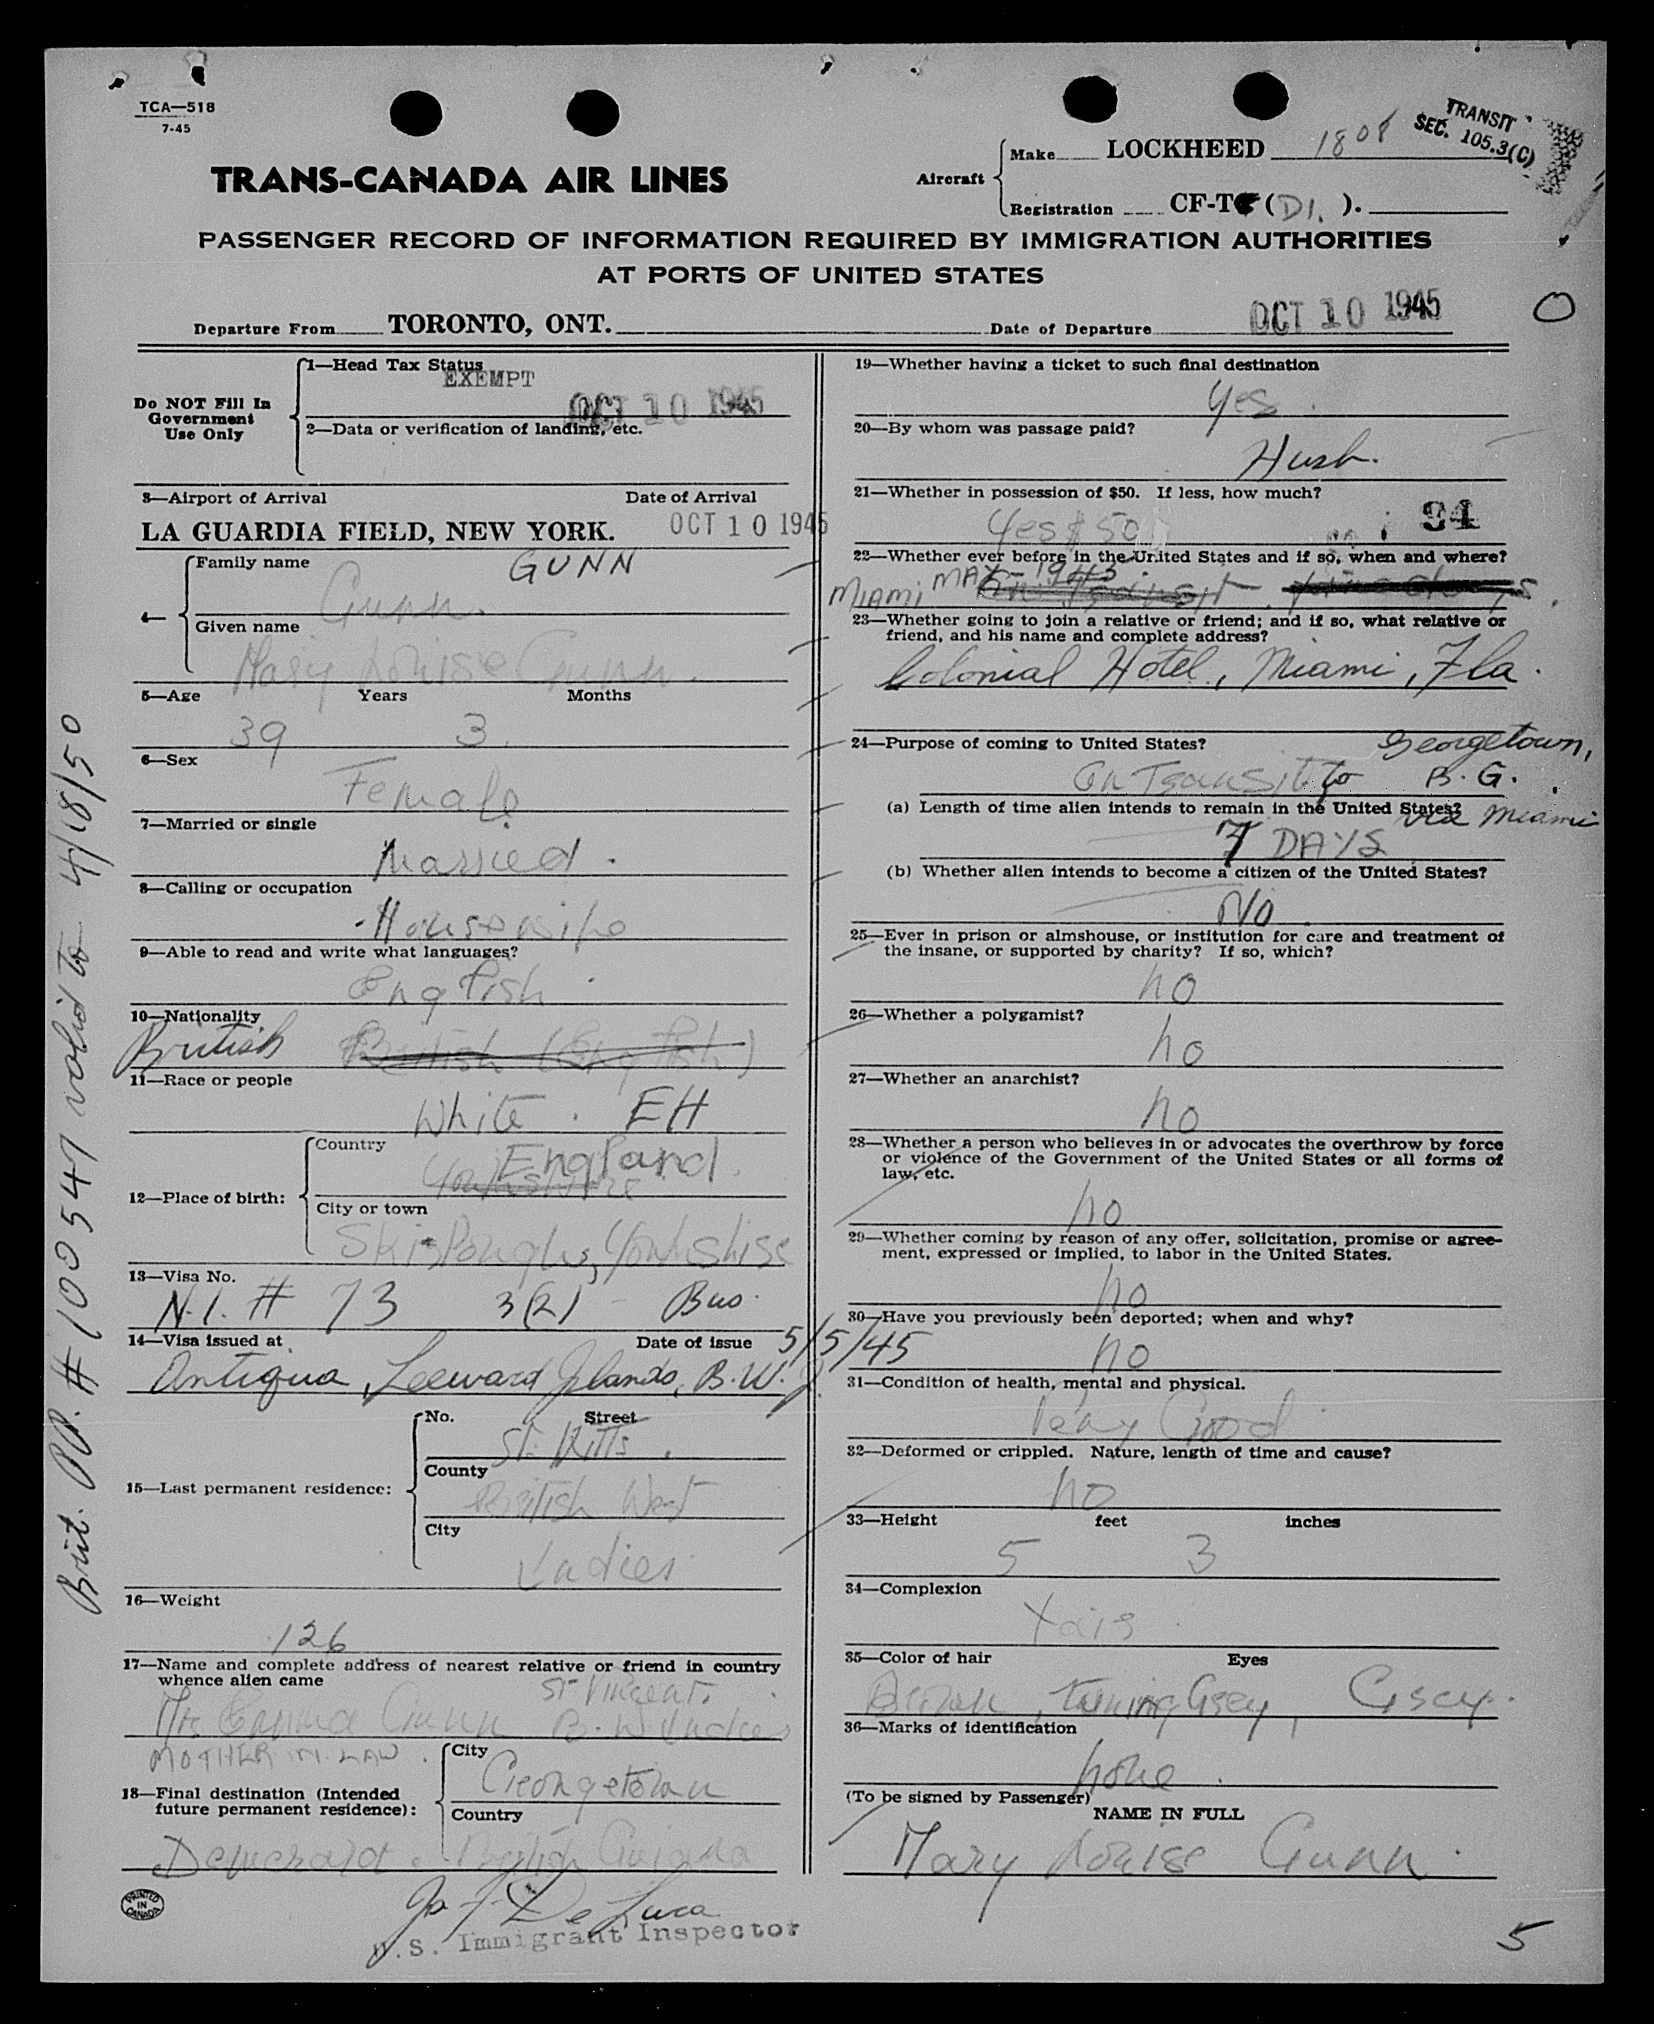 TCA—518
7-45
TRANSIT
SEC. 105.3(C)
TRANS-CANADA AIR LINES
Aircraft
Make LOCKHEED 1808
Registration CF-T (D1.).
PASSENGER RECORD OF INFORMATION REQUIRED BY IMMIGRATION AUTHORITIES
AT PORTS OF UNITED STATES
Departure From TORONTO, ONT. Date of Departure OCT 10 1945
O
Do NOT Fill In
Government
Use Only
1—Head Tax Status
EXEMPT
OCT 10 1945
2—Data or verification of landing, etc.
3—Airport of Arrival Date of Arrival
LA GUARDIA FIELD, NEW YORK. OCT 10 1945
4—
Family name GUNN
Gunn.
Given name
Mary Louise Gunn.
5—Age Years Months
39 3
6—Sex
Female
7—Married or single
Married.
8—Calling or occupation
Housewife
9—Able to read and write what languages?
English
10—Nationality
British British (English)
11—Race or people
White. EH
12—Place of birth:
Country
England.
Yorkshire
City or town
Yorkshire
13—Visa No.
N.I. # 73 3(2) - Bus.
14—Visa issued at Date of issue 5/5/45
Antigua, Leeward Islands, B.W.I.
15—Last permanent residence:
No. Street
St. Kitts.
County
British West
City
Indies
16—Weight
126
17—Name and complete address of nearest relative or friend in country
whence alien came
St Vincent.
Mrs Emma Gunn B. W. Indies
MOTHER IN LAW.
18—Final destination (Intended
future permanent residence):
City
Georgetown
Country
Demerara. British Guiana
PRINTED
IN
CANADA
De Luca
U.S. Immigrant Inspector
Brit. PP. # 100547 valid to 4/18/50
19—Whether having a ticket to such final destination
Yes.
20—By whom was passage paid?
Husb.
21—Whether in possession of $50. If less, how much?
Yes $50 94
22—Whether ever before in the United States and if so, when and where?
MIAMI MAY - 1943
23—Whether going to join a relative or friend; and if so, what relative or
friend, and his name and complete address?
Colonial Hotel, Miami, Fla.
24—Purpose of coming to United States? Georgetown,
In Transit to B.G.
via Miami
(a) Length of time alien intends to remain in the United States?
7 DAYS
(b) Whether alien intends to become a citizen of the United States?
No.
25—Ever in prison or almshouse, or institution for care and treatment of
the insane, or supported by charity? If so, which?
no
26—Whether a polygamist?
no
27—Whether an anarchist?
no
28—Whether a person who believes in or advocates the overthrow by force
or violence of the Government of the United States or all forms of
law, etc.
no
29—Whether coming by reason of any offer, solicitation, promise or agree-
ment, expressed or implied, to labor in the United States.
no
30—Have you previously been deported; when and why?
no
31—Condition of health, mental and physical.
Very Good
32—Deformed or crippled. Nature, length of time and cause?
no
33—Height feet inches
5 3
34—Complexion
Fair
35—Color of hair Eyes
Brown, turning Grey, Grey.
36—Marks of identification
none.
(To be signed by Passenger)
NAME IN FULL
Mary Louise Gunn.
5